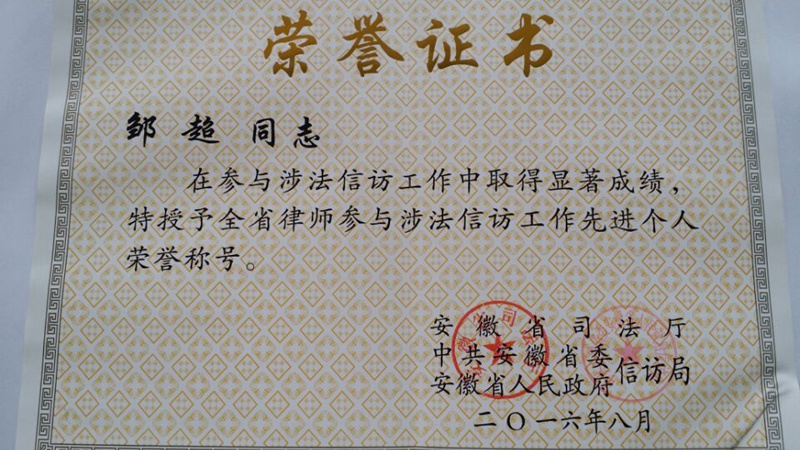 荣誉证书
邹超同志
在参与涉法信访工作中取得显著成绩，
特授予全省律师参与涉法信访工作先进个人
荣誉称号。
安徽省司法厅
中共安徽省委
安徽省人民政府 信访局
二〇一六年八月